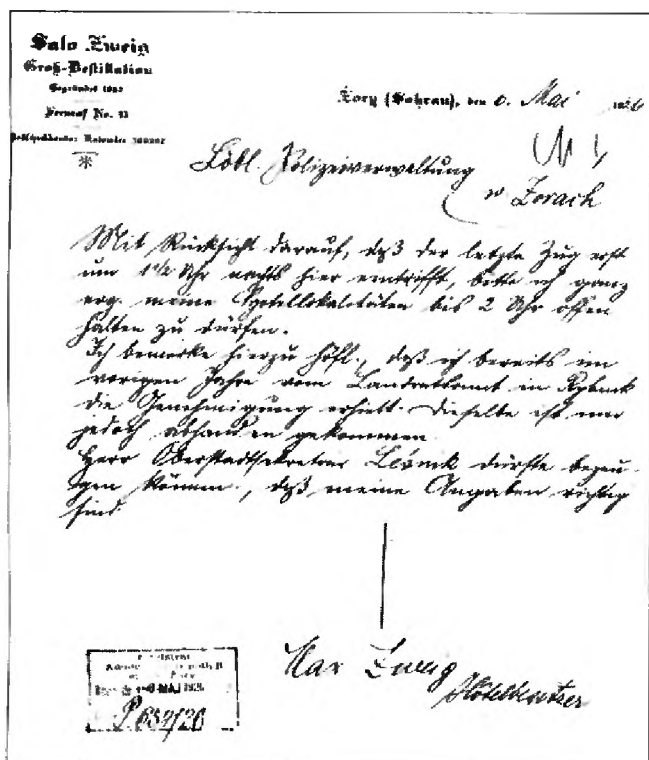 Salo Zweig
Groß-Destillation
Gegründet
Fernruf No.
Żory (Sohrau), den 6. Mai
Löbl. Polizeiverwaltung
w Żorach
Mit Rücksicht darauf, daß der letzte Zug erst
um 1½ Uhr nachts hier eintrifft, bitte ich ganz
erg. meine Hotellokalitäten bis 2 Uhr offen
halten zu dürfen.
Ich bemerke hierzu höfl., daß ich bereits im
vorigen Jahre vom Landratsamt in Rybnik
die Genehmigung erhielt. Dieselbe ist mir
jedoch abhanden gekommen.
Herr Oberstadtsekretär Leśnik dürfte bezeu-
gen können, daß meine Angaben richtig
sind.
Max Zweig
Hotelbesitzer